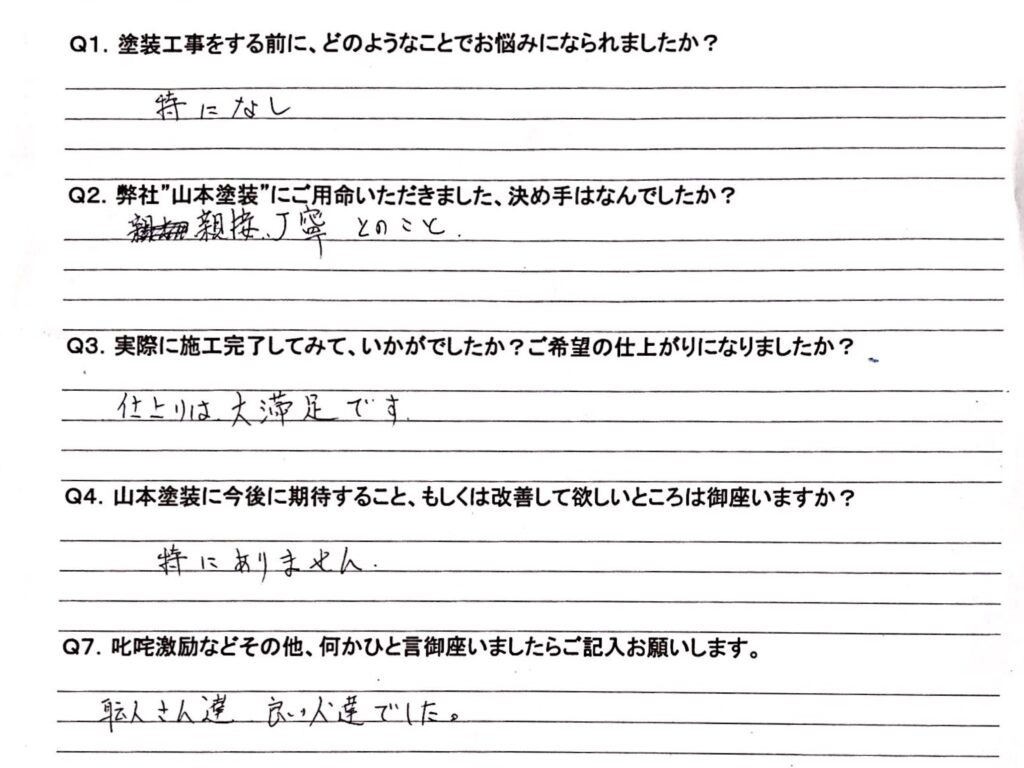 Q1. 塗装工事をする前に、どのようなことでお悩みになられましたか？
特になし
Q2. 弊社”山本塗装”にご用命いただきました、決め手はなんでしたか？
親接、丁寧 とのこと.
Q3. 実際に施工完了してみて、いかがでしたか？ご希望の仕上がりになりましたか？
仕上りは、大満足です.
Q4. 山本塗装に今後に期待すること、もしくは改善して欲しいところは御座いますか？
特にありません.
Q7. 叱咤激励などその他、何かひと言御座いましたらご記入お願いします。
転人さん達 良い人達でした。